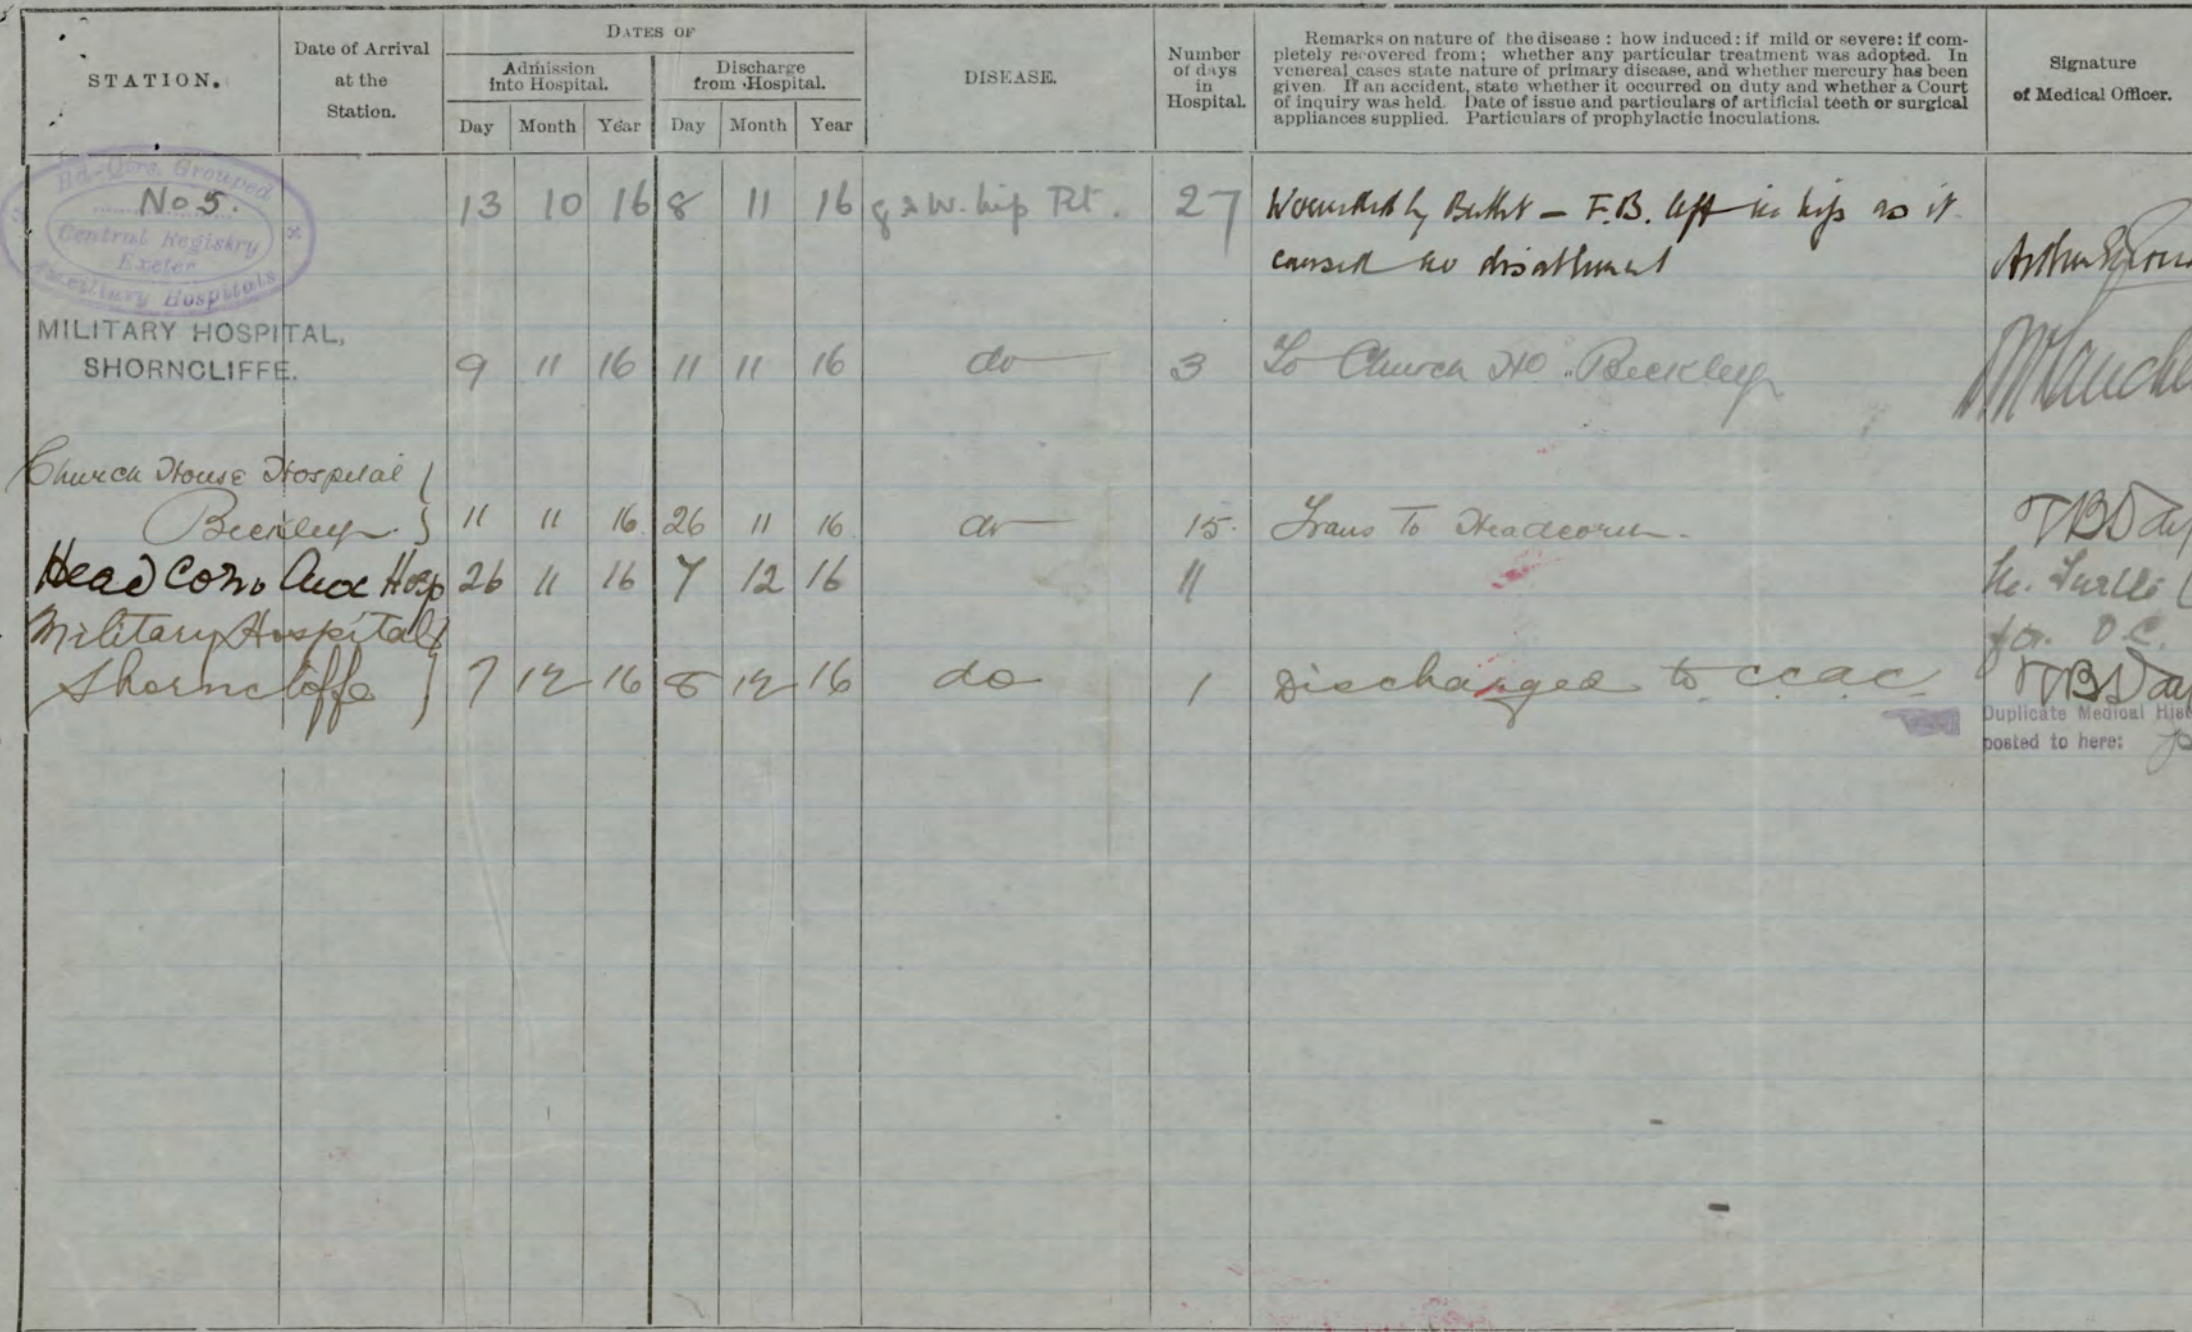 STATION.
Date of Arrival
at the
Station.
DATES OF
Admission
into Hospital.
Discharge
from Hospital.
Day Month Year Day Month Year
DISEASE.
Number
of days
in
Hospital.
Remarks on nature of the disease: how induced: if mild or severe: if com-
pletely recovered from; whether any particular treatment was adopted. In
venereal cases state nature of primary disease, and whether mercury has been
given. If an accident, state whether it occurred on duty and whether a Court
of inquiry was held. Date of issue and particulars of artificial teeth or surgical
appliances supplied. Particulars of prophylactic inoculations.
Signature
of Medical Officer.
Hd-Qtrs. Grouped
No 5.
Central Registry
Exeter
Auxiliary Hospitals
13 10 16 8 11 16 g s W. hip Rt. 27 Wounded by Bullet - F.B. left in hip as it
caused no disablement
Arthur
MILITARY HOSPITAL,
SHORNCLIFFE. 9 11 16 11 11 16 do 3 To Church Ho. Beckley
Church House Hospital
Beckley. 11 11 16 26 11 16 do 15. Trans To Headcorn. TBDay
Head Corn Aux Hosp 26 11 16 7 12 16 11
Military Hospital
for O.C.
Shorncliffe 7 12 16 8 12 16 do 1 Discharged to ccac. TBDay
Duplicate Medical Hist
posted to here: